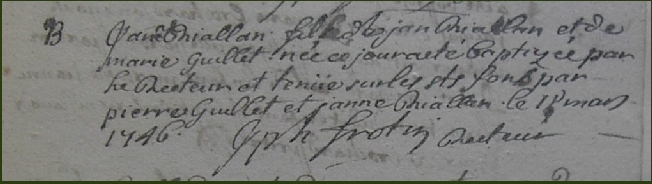 B Janne Thiallan fille de jan Thiallan et de
marie Guillet née ce jour a eté baptizée par
le Recteur et tenüe sur les sts fons par
pierre Guillet et janne Thiallan le 18 mars
1746. Jph frotin Recteur